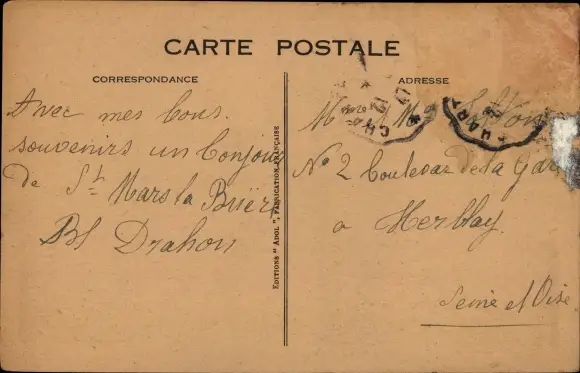 CARTE POSTALE
CORRESPONDANCE
Avec mes bons
souvenirs un bonjour
de St Mars la Brière
Drahon
Editions "Adol", Fabrication Française
ADRESSE
No 2 boulevar de la Gare
a Herblay
Seine et Oise